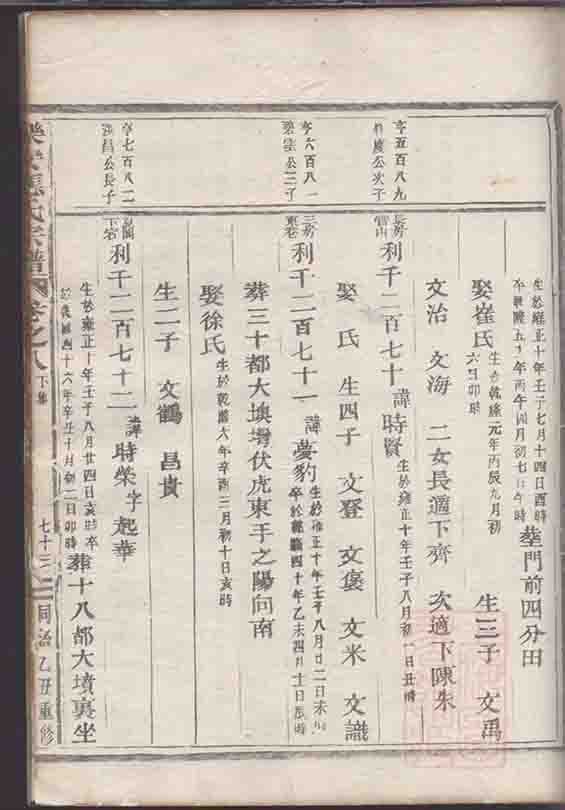 生於雍正十年壬子七月十四日酉時
卒乾隆五　年丙午四月初七日午時
葬門前四分田
娶崔氏
生於乾隆元年丙辰九月初
六日卯時
生三子　文禹
文治　文海　二女長適下齊　次適下陳朱
亨五百八九
公次子
長房
利千二百七十　諱時賢
生於雍正十年壬子八月初一日丑時
娶　氏　生四子　文登　文褒　文米　文識
亨六百八一
公三子
三房
東巷
利千二百七十一　諱夢豹
生於雍正十年壬子八月廿二日未時
卒於乾隆四十年乙未四月十日辰時
葬三十都大塽塆伏虎東手之陽向南
娶徐氏
生於乾隆六年辛酉三月初十日亥時
生二子　文鶴　昌貴
亨七百八二
昌公長子
下宅
利千二百七十二　諱時榮字起華
生於雍正十年壬子八月廿四日亥時卒
於乾隆四十六年辛丑十月初二日卯時
葬十八都大墳裏坐
氏宗譜
卷之八
下集
七十三
同治乙丑重修